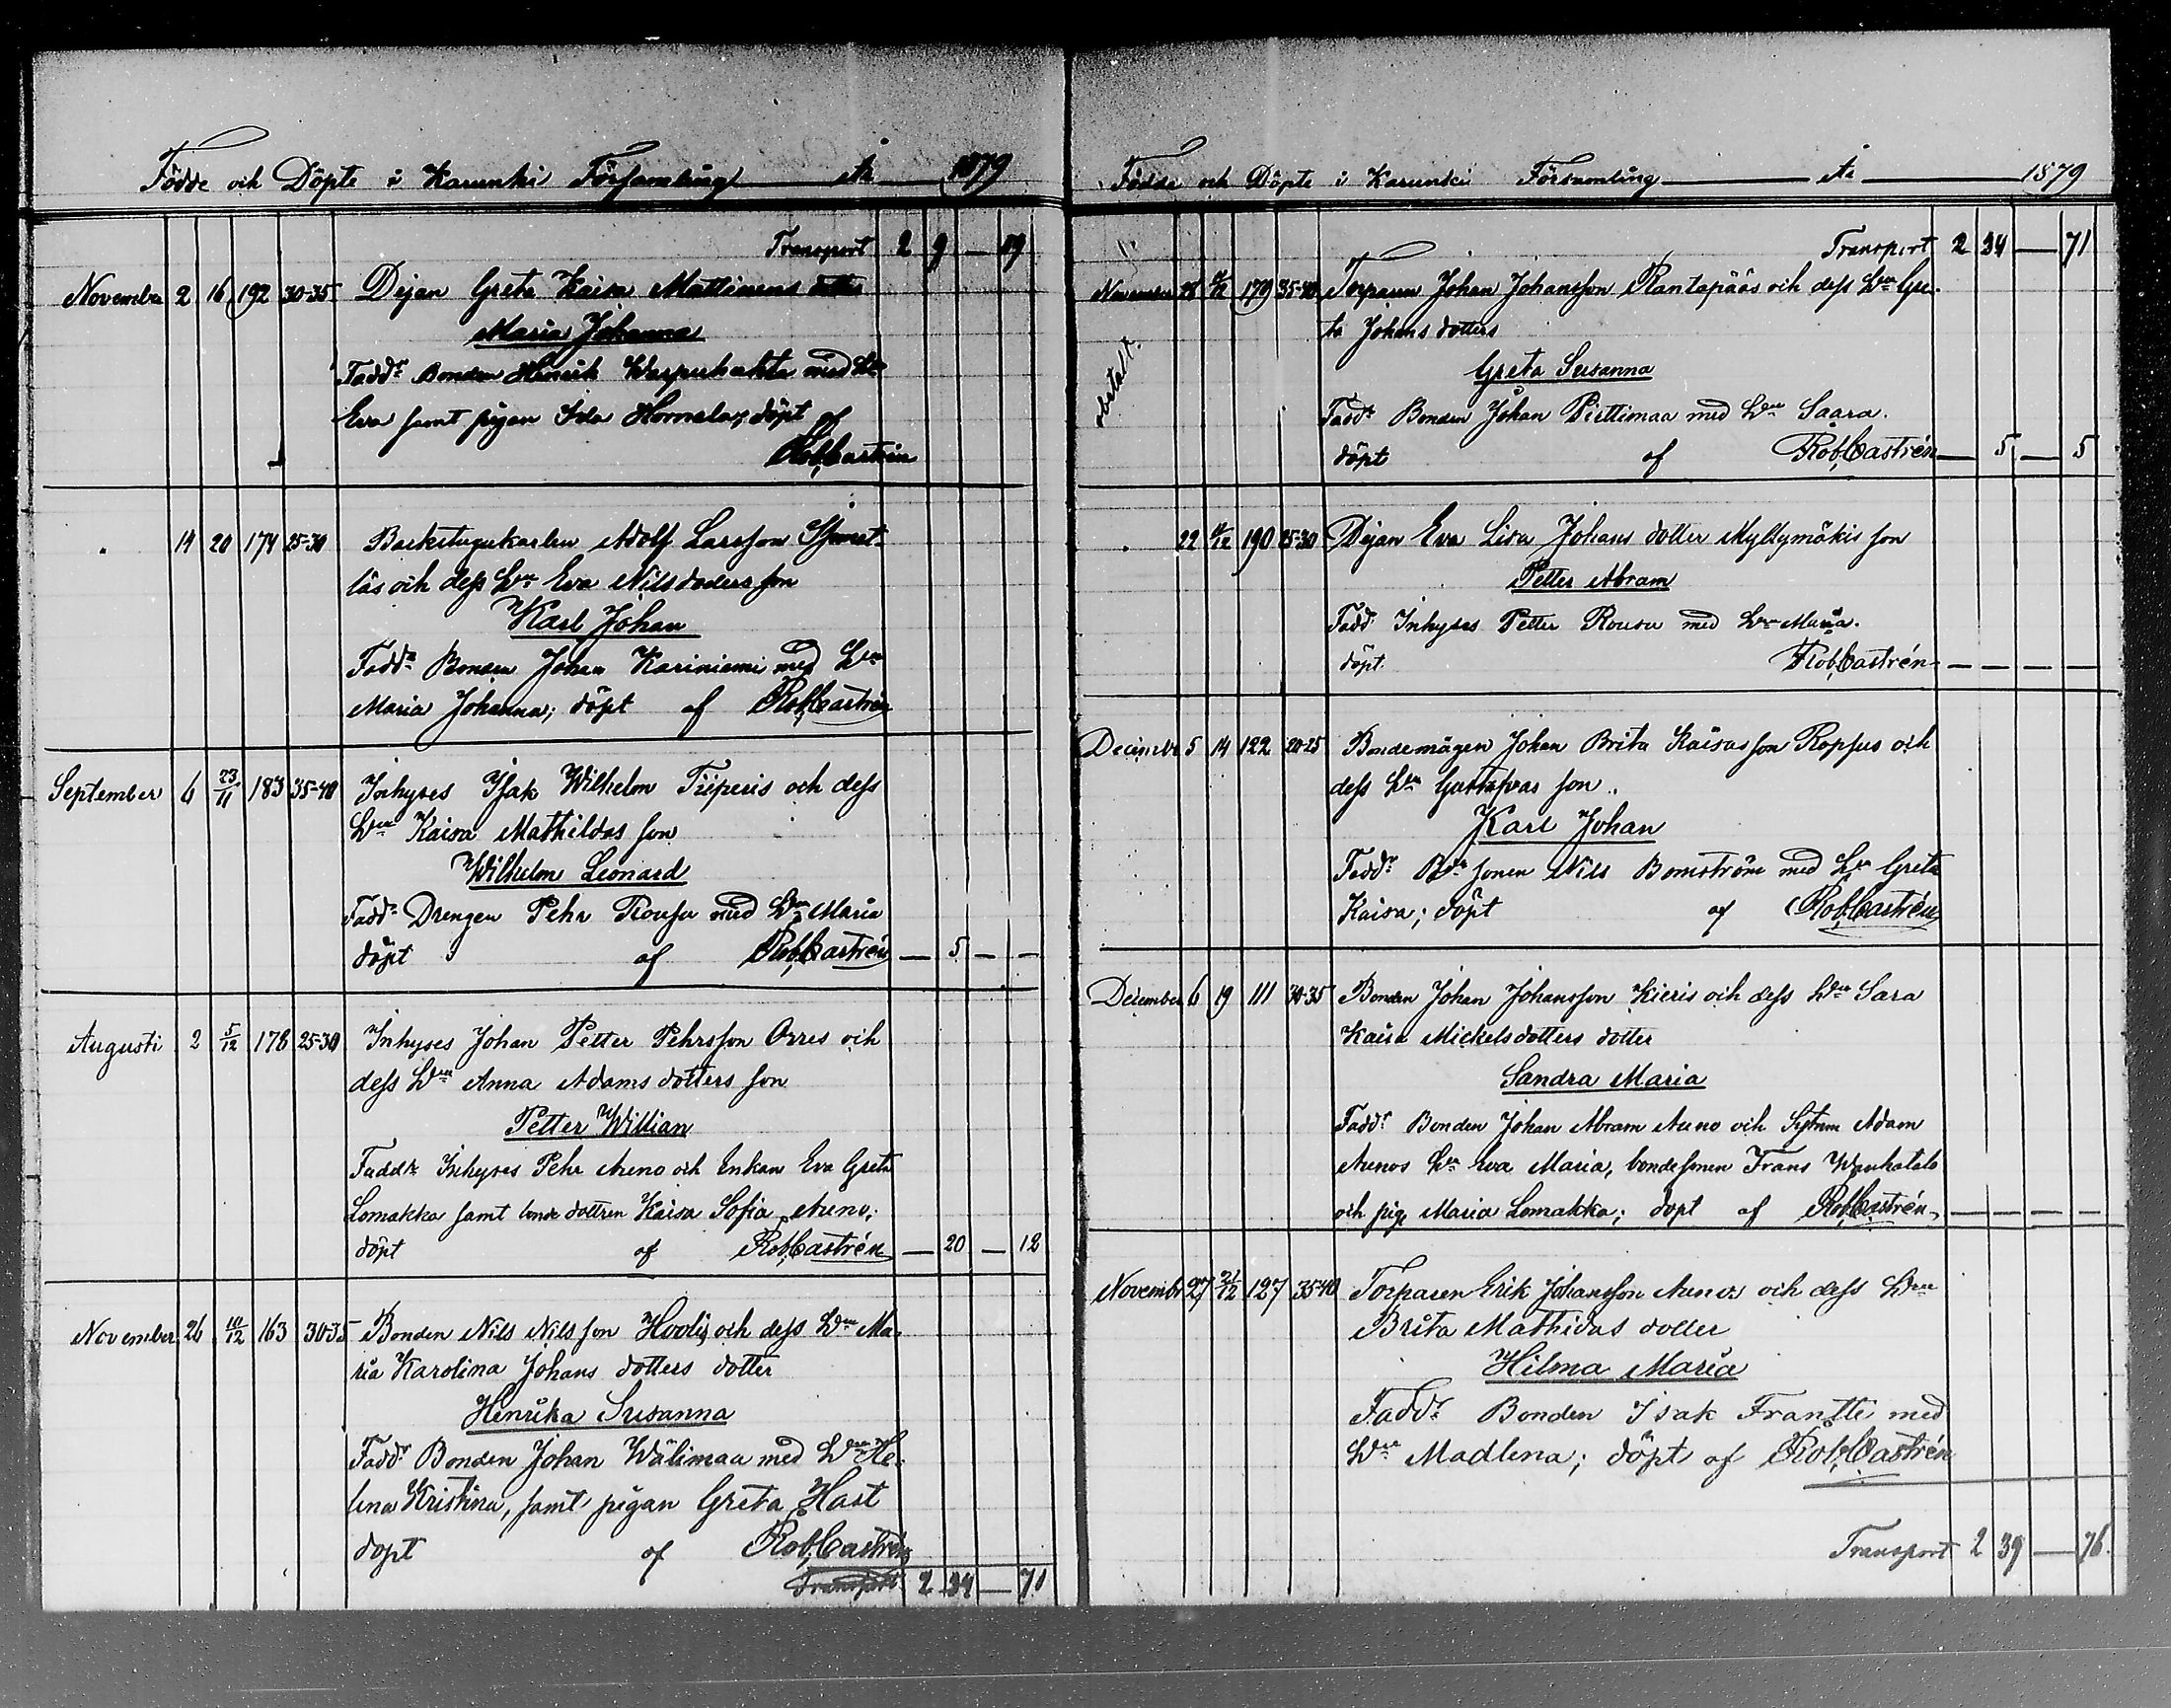 Födde och Döpte i Karunki Församling År 1879
Transport 2 9 — 19
November 2 16 192 30-35 Pigan Greta Kaisa Mattinens dotter
Maria Johanna
Fadd:r Bonden Henrik med H:u
Eva samt pigan Ida döpt af
Rob. Castrén
" 14 20 174 25-30 Backstugukarlen Adolf Larsson
och dess H:u Eva Nilsdotters son
Karl Johan
Fadd:r Bonden Johan Kariniemi med H:u
Maria Johanna; döpt af Rob. Castrén
September 6 23/11 183 35-40 Inhyses Isak Wilhelm Tiiperis och dess
H:u Kaisa Mathildas son
Wilhelm Leonard
Fadd:r Drengen Pehr Rousu med H:u Maria
döpt af Rob. Castrén — 5 — —
Augusti 2 5/12 178 25-30 Inhyses Johan Petter Pehrsson Orres och
dess H:u Anna Adams dotters son
Petter Willian
Fadd:r Inhyses Pehr Auno och Enkan Eva Greta
Lomakka samt bonde dottren Kaisa Sofia Auno;
döpt af Rob. Castrén — 20 — 12
November 26 10/12 163 30-35 Bonden Nils Nilsson Hoolis och dess H:u Ma-
ria Karolina Johans dotters dotter
Henrika Susanna
Fadd:r Bonden Johan Wälimaa med H:u He-
lena Kristina, samt pigan Greta Hast
döpt af Rob. Castrén
Transport 2 34 — 71
Födde och Döpte i Karunki Församling År 1879
Transport 2 34 — 71
November 28 179 35-40 Torparen Johan Johansson Rantapääs och dess H:u Gre-
ta Johans dotters
Greta Susanna
Fadd:r Bonden Johan Piettimaa med H:u Saara.
döpt af Rob. Castrén — 5 — 5
" 22 190 25-30 Pigan Eva Lisa Johans dotter Myllymäkis son
Petter Abram
Fadd Inhyses Petter Rousu med H:u Maria.
döpt. Rob. Castrén — — — —
December 5 14 122 20-25 Bondemågen Johan Brita Kaisasson Ropsus och
dess H:u Gustafvas son.
Karl Johan
Fadd:r B:de sonen Nils Bomström med H:u Greta
Kaisa; döpt af Rob. Castrén
December 6 19 111 30-35 Bonden Johan Johansson Kieris och dess H:u Sara
Kaisa Mickelsdotters dotter
Sandra Maria
Fadd:r Bonden Johan Abram Auno och Sytnm Adam
Aunos H:u Eva Maria, bondesonen Frans Wanhatalo
och pig. Maria Lomakka; döpt af Rob. Castrén — — — —
November 27 21/12 127 35-40 Torparen Erik Johansson Aunos och dess H:u
Brita Mathidas dotter
Hilma Maria
Fadd:r Bonden Isak Frantti med
H:u Madlena; döpt af Rob. Castrén
Transport 2 39 — 76.